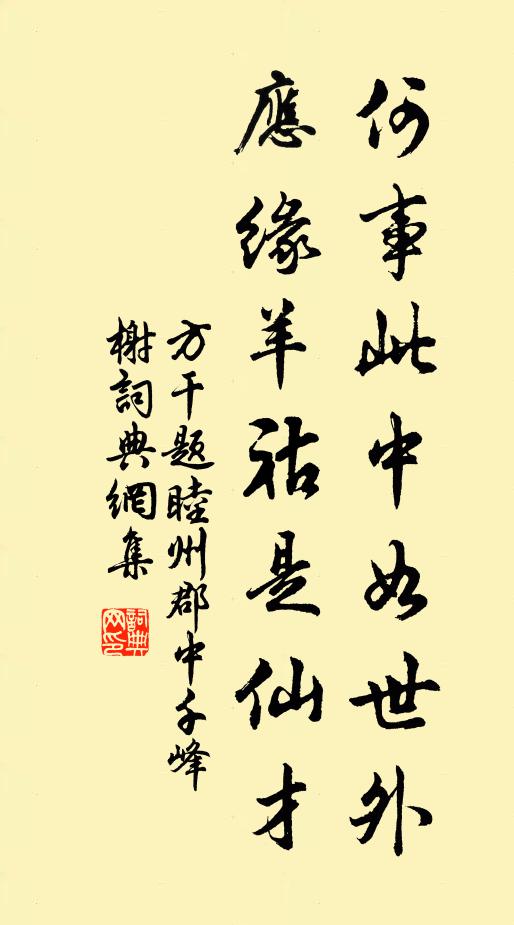 何事此中如世外
應緣羊祜是仙才
方干題睦州郡中千峰
榭詞典網集
詞典
网印